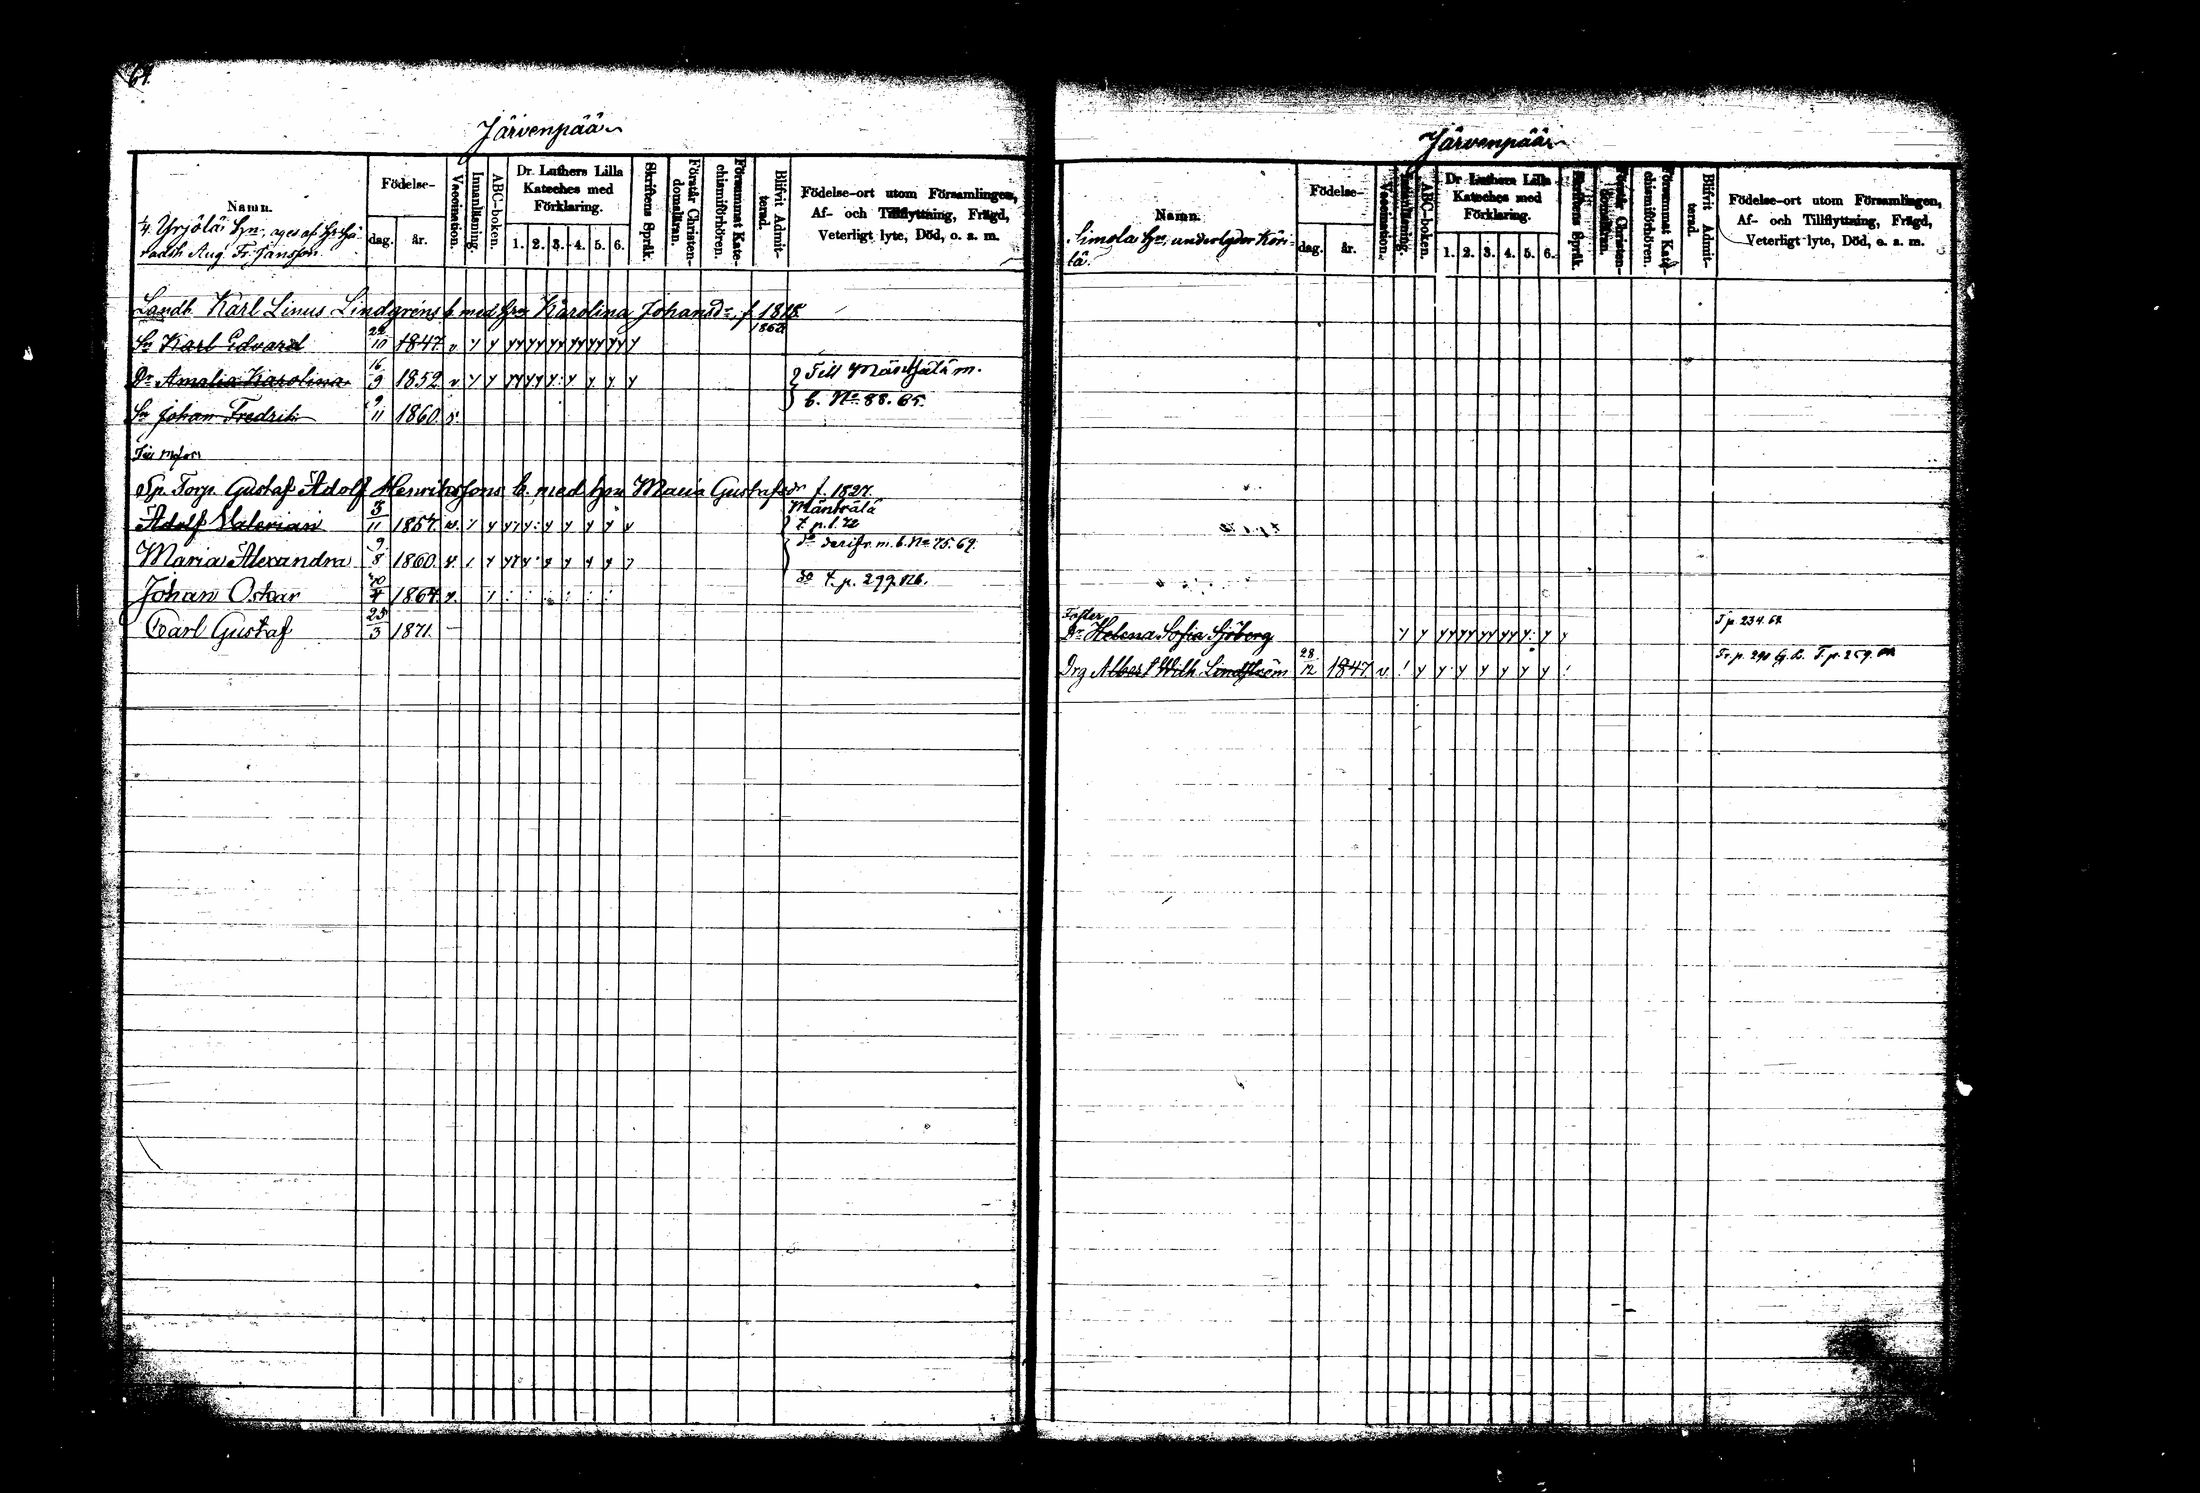 64.
Järvenpää
Namn.
Födelse-
dag.
år.
Vaccination.
Innanläsning.
ABC-boken.
Dr. Luthers Lilla
Kateches med
Förklaring.
1. 2. 3. 4. 5. 6.
Skriftens Språk.
Förstår Christen-
domsläran.
Försummat Kate-
chismiförhören.
Blifvit Admit-
terad.
Födelse-ort utom Församlingen,
Af- och Tillflyttning, Frägd,
Veterligt lyte, Död, o. a. m.
Yrjölä Hn, ages af
Aug. Fr. Jansson
Landb. Karl Linus Lindgrens b. med hn Karolina Johansdr. f. 1818.
1862
Sn Karl Edvard 22/10 1847. v y y yy yy yy yy yy yy y
Dr Amalia Karolina 16/9 1852 v y y yy yy y y y y y
Till Mäntsälä m.
b. No 88. 65.
Sn Johan Fredrik 9/11 1860.
Sp. Torp. Gustaf Adolf Henrikssons b. med hn Maria Gustafsdr f. 1827.
Adolf Valerian 3/11 1857. v. y y yy y: y y y y y
Mäntsälä
T. p. l. 72
Maria Alexandra 9/8 1860. v. y
do derifr. m. b. No 75. 69.
Johan Oskar 1864. v.
do T. p. 299.
Carl Gustaf 25/3 1871. –
Järvenpää
Namn.
Födelse-
dag.
år.
Vaccination.
Innanläsning.
ABC-boken.
Dr. Luthers Lilla
Kateches med
Förklaring.
1. 2. 3. 4. 5. 6.
Skriftens Språk.
Förstår Christen-
domsläran.
Försummat Kate-
chismiförhören.
Blifvit Admit-
terad.
Födelse-ort utom Församlingen,
Af- och Tillflyttning, Frägd,
Veterligt lyte, Död, o. a. m.
Simola Hn, underlyder Köri-
lä.
Foster
Dr Helena Sofia Sjöberg y y yy yy yy yy y: y y
T p. 234. 67.
Drg Albert Wilh. Lindström 28/12 1847 v. ! y y y y y y y !
Fr. p. 290 T. p. 259.